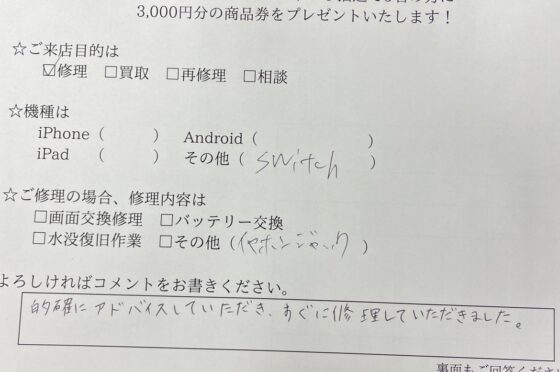 3,000円分の商品券をプレゼントいたします！
☆ご来店目的は
☑修理 □買取 □再修理 □相談
☆機種は
iPhone（ ） Android（ ）
iPad （ ） その他（ switch ）
☆ご修理の場合、修理内容は
□画面交換修理 □バッテリー交換
□水没復旧作業 □その他（イヤホンジャック）
よろしければコメントをお書きください。
的確にアドバイスしていただき、すぐに修理していただきました。
裏面もご回答くださ